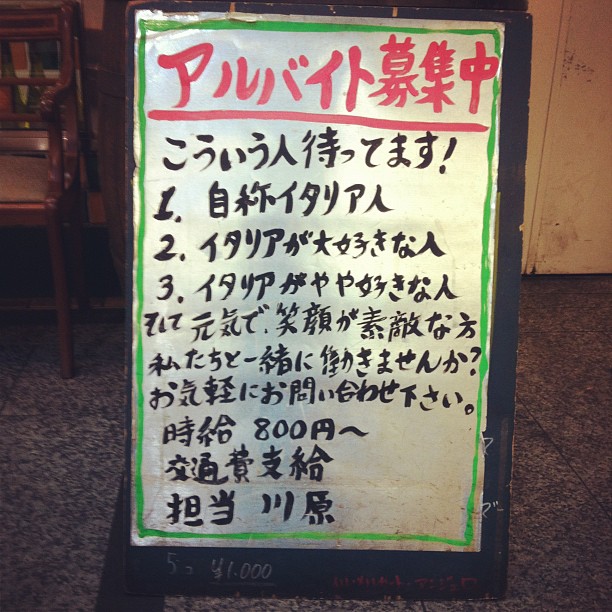 アルバイト募集中
こういう人待ってます!
1. 自称イタリア人
2. イタリアが大好きな人
3. イタリアがやや好きな人
そして元気で、笑顔が素敵な方
私たちと一緒に働きませんか?
お気軽にお問い合わせ下さい。
時給 800円〜
交通費支給
担当 川原
5コ ¥1.000